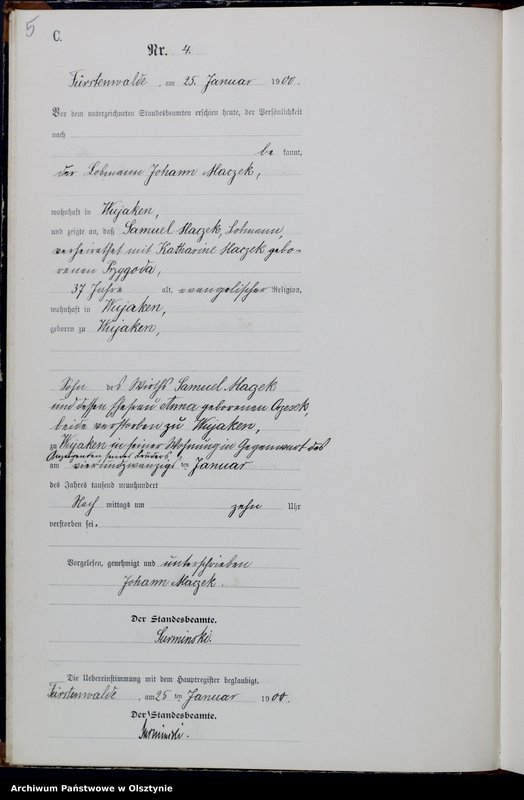 5
C.
Nr. 4.
Fürstenwalde, am 25. Januar 1900.
Vor dem unterzeichneten Standesbeamten erschien heute, der Persönlichkeit
nach
be kannt,
der Losmann Johann Maczek,
wohnhaft in Wujaken,
und zeigte an, daß Samuel Maczek, Losmann,
verheirathet mit Katharine Maczek gebo-
renen Przygoda,
37 Jahre alt, evangelischer Religion,
wohnhaft in Wujaken,
geboren zu Wujaken,
Sohn des Wirths Samuel Maczek
und dessen Ehefrau Anna geborenen
beide verstorben zu Wujaken,
zu Wujaken in seiner Wohnung in Gegenwart des
Anzeigenden seines Bruders
am vierundzwanzigsten Januar
des Jahres tausend neunhundert
Nach mittags um zehn Uhr
verstorben sei.
Vorgelesen, genehmigt und unterschrieben
Johann Maczek.
Der Standesbeamte.
Surminski.
Die Uebereinstimmung mit dem Hauptregister beglaubigt.
Fürstenwalde, am 25 ten Januar 1900.
Der Standesbeamte.
Surminski.
Archiwum Państwowe w Olsztynie